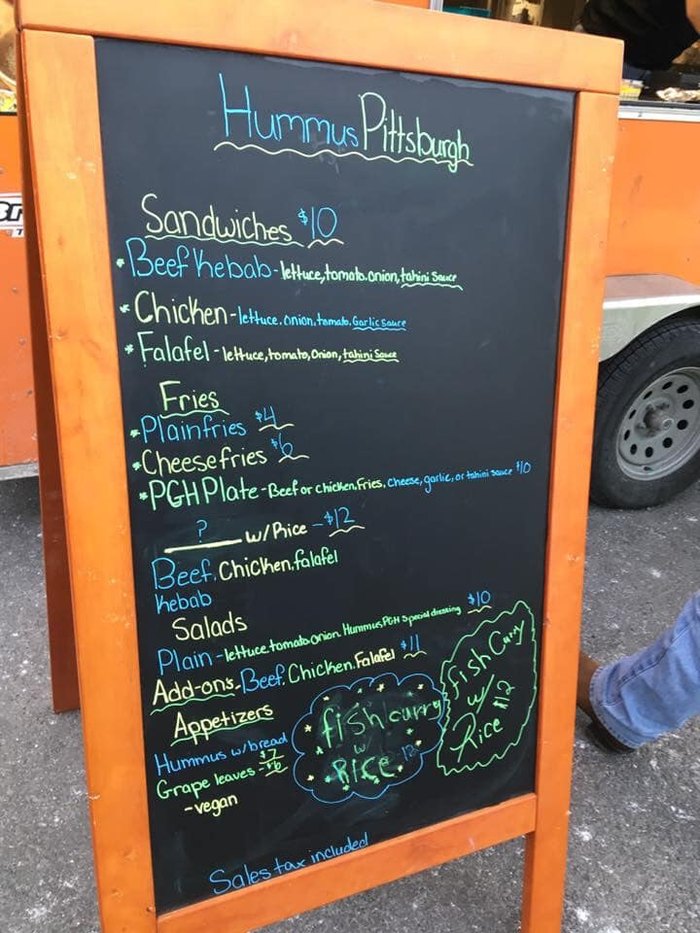 Hummus Pittsburgh
Sandwiches $10
* Beef Kebab - lettuce, tomato. onion, tahini sauce
* Chicken - lettuce. onion. tomato. Garlic sauce
* Falafel - lettuce, tomato, onion, tahini sauce
Fries
* Plain fries $4
* Cheese fries $6
* PGH Plate - Beef or chicken, fries, cheese, garlic, or tahini sauce $10
? w/Rice - $12
Beef. Chicken. falafel
Kebab
Salads
Plain - lettuce. tomato. onion. Hummus, PGH special dressing $10
Add-ons. Beef. Chicken. Falafel $11
Appetizers
Hummus w/bread
$7
Grape leaves - $6
- vegan
fish curry
w/
RICE 12
fish Curry
w/
Rice $12
Sales tax included